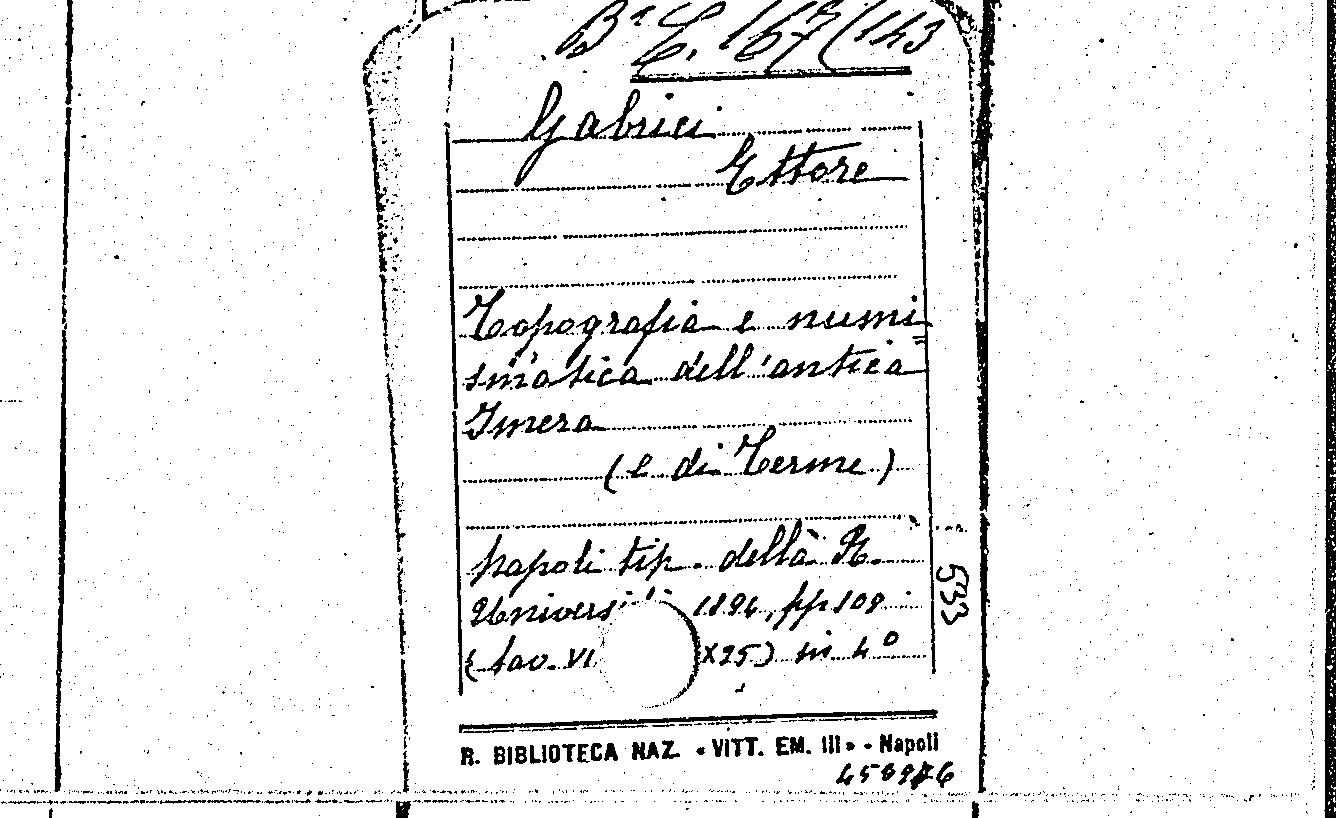 Bª C. 167 (143
Gabrici
Ettore
Topografia e numi=
smatica dell'antica
Imera
(e di Terme)
Napoli tip. della R.
Università 1894, pp 108
(tav. VI X25) in 4º
533
R. BIBLIOTECA NAZ. «VITT. EM. III» - Napoli